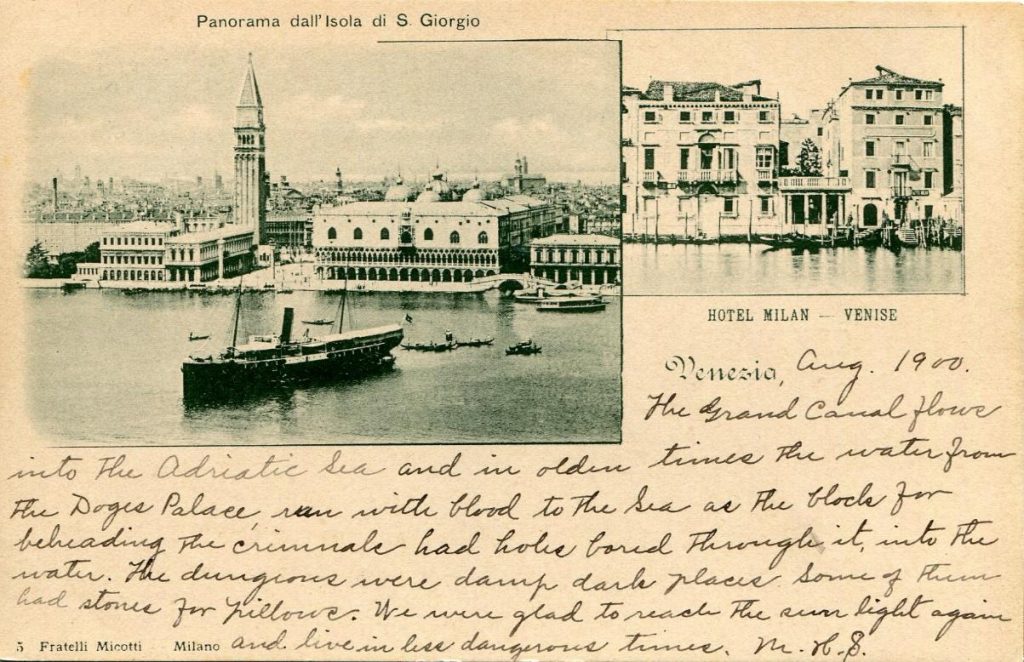 Panorama dall'Isola di S. Giorgio
HOTEL MILAN — VENISE
Venezia, Aug. 1900.
The Grand Canal flows
into the Adriatic Sea and in olden times the water from
the Doges Palace, run with blood to the Sea as the block for
beheading the crimnals had holes bored through it, into the
water. The dungeons were damp dark places some of them
had stones for pillows. We were glad to reach the sun light again
and live in less dangerous times. M. H. S.
5 Fratelli Micotti Milano